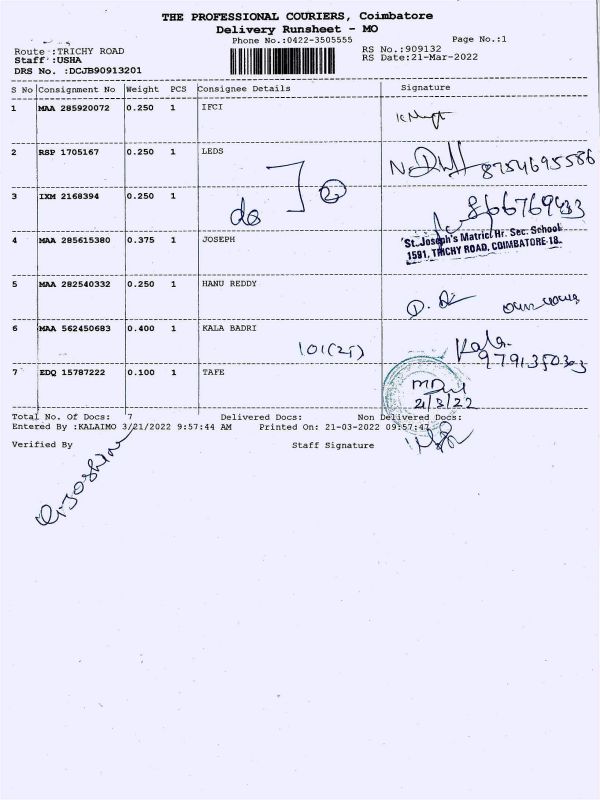 THE PROFESSIONAL COURIERS, Coimbatore
Delivery Runsheet - MO
Phone No.:0422-3505555
Page No.:1
Route :TRICHY ROAD
RS No.:909132
Staff :USHA
RS Date:21-Mar-2022
DRS No. :DCJB90913201
S No Consignment No Weight PCS Consignee Details Signature
1 MAA 285920072 0.250 1 IFCI
2 RSP 1705167 0.250 1 LEDS
8754695586
3 IXM 2168394 0.250 1
do
2
866769433
4 MAA 285615380 0.375 1 JOSEPH
St. Joseph's Matric. Hr. Sec. School
1581, TRICHY ROAD, COIMBATORE-18.
5 MAA 282540332 0.250 1 HANU REDDY
6 MAA 562450683 0.400 1 KALA BADRI
101(25)
Kala
9791350303
7 EDQ 15787222 0.100 1 TAFE
21/3/22
Total No. Of Docs: 7 Delivered Docs: Non Delivered Docs:
Entered By :KALAIMO 3/21/2022 9:57:44 AM Printed On: 21-03-2022 09:57:47
Verified By Staff Signature